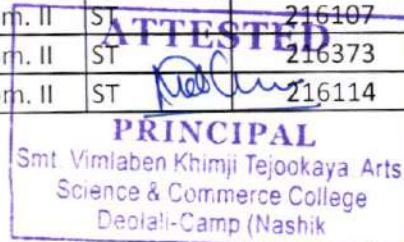 m. II ST 216107
m. II ST 216373
m. II ST 216114
ATTESTED
PRINCIPAL
Smt. Vimlaben Khimji Tejookaya Arts
Science & Commerce College
Deolali-Camp (Nashik